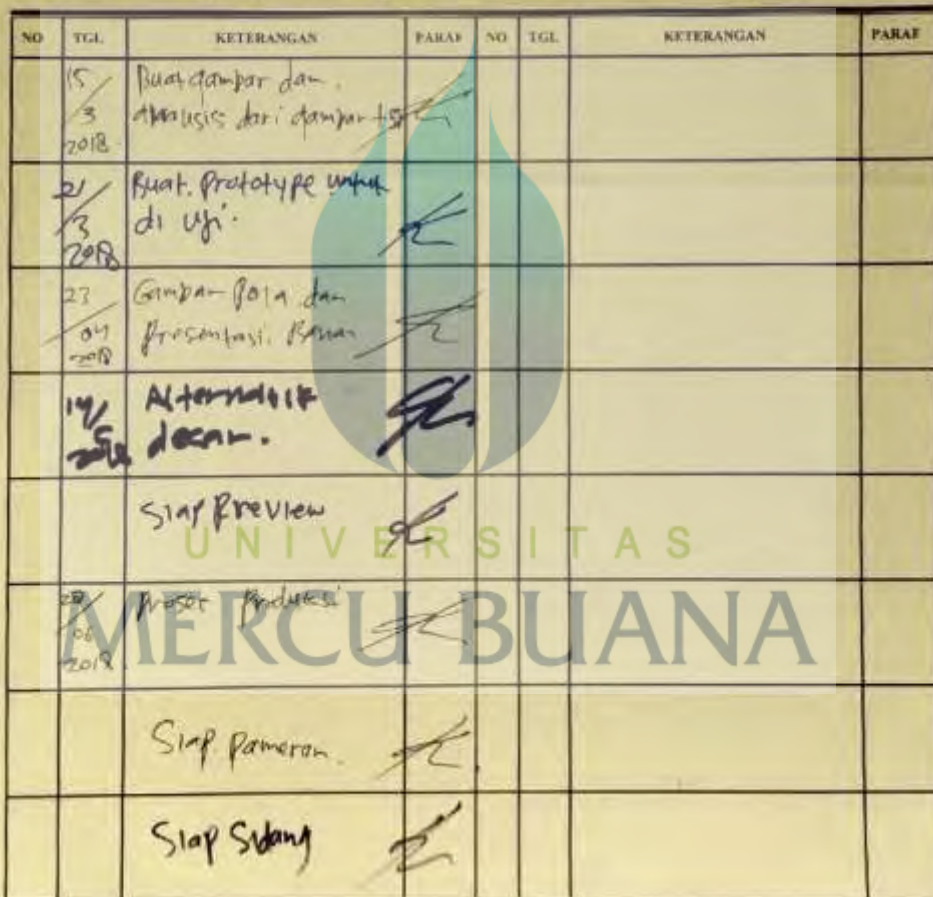 NO TGL KETERANGAN PARAF NO TGL KETERANGAN PARAF
15/3 2018 Buat gambar dan
analisis dari gambar tsb
21/3 2018 Buat. Prototype untuk
di uji.
23/04 2018 Gambar Pola dan
Presentasi. Bahan
14/5 2018 Alternatif
desain.
Siap Preview
UNIVERSITAS
MERCU BUANA
28/06 2018 Proses Produksi
Siap. pameran.
Siap Sidang